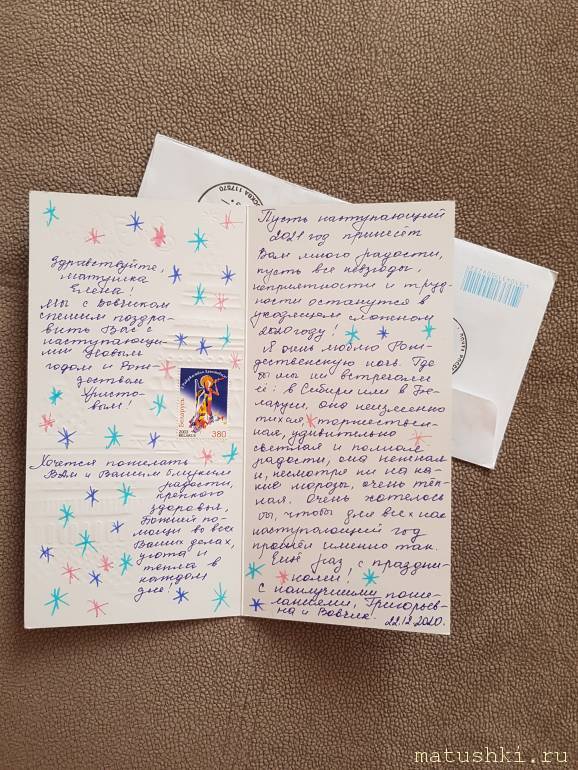 МОСКВА 117570
Здравствуйте,
матушка
Елена!
Мы с Вовчиком
спешим поздра-
вить Вас с
наступающи-
ми Новым
годом и Рож-
деством
Христо-
вым!
Беларусь
2003
BELARUS
380
Хочется пожелать
Вам и Вашим близким
радости,
крепкого
здоровья,
Божией по-
мощи во всех
Ваших делах,
уюта и
тепла в
каждом
дне!
Пусть наступающий
2021 год принесёт
Вам много радости,
пусть все невзгоды,
неприятности и труд-
ности останутся в
уходящем сложном
2020 году!
Я очень люблю Рож-
дественскую ночь. Где
бы мы ни встречали
её: в Сибири или в Бе-
ларуси, она неизменно
тихая, торжествен-
ная, удивительно
светлая и полная
радости, она нежная
и, несмотря ни на ка-
кие морозы, очень тёп-
лая. Очень хотелось
бы, чтобы для всех нас
наступающий год
прошёл именно так.
Ещё раз, с праздни-
ками!
С наилучшими поже-
ланиями, Григорьев-
на и Вовчик.
22.12.2020.
matushki.ru